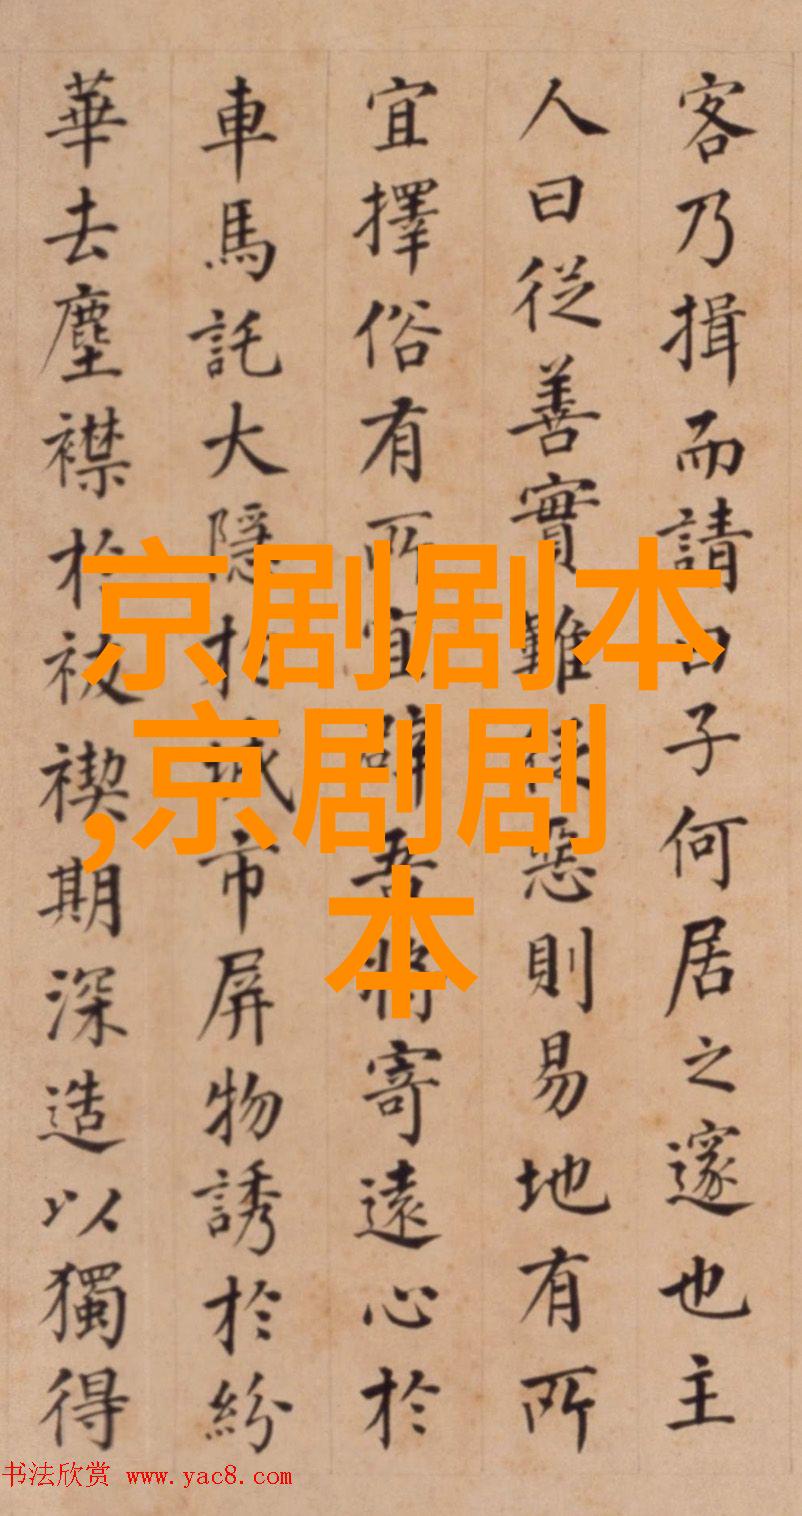 客乃揖而請曰子何居之邃也主
人曰從善實難從惡則易地有所
宜擇俗有所宜辟吾將寄遠心於
車馬託大隱於城市屏物誘於紛
華去塵襟於祓禊期深造以獨得
京剧剧本
,京剧剧
本
书法欣赏 www.yac8.com